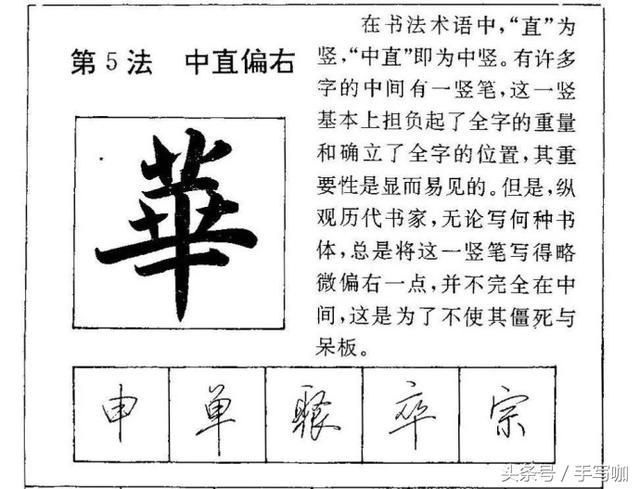 第5法 中直偏右
在书法术语中,“直”为
竖,“中直”即为中竖。有许多
字的中间有一竖笔,这一竖
基本上担负起了全字的重量
和确立了全字的位置,其重
要性是显而易见的。但是,纵
观历代书家,无论写何种书
体,总是将这一竖笔写得略
微偏右一点,并不完全在中
间,这是为了不使其僵死与
呆板。
華
申 单 聚 卒 宗
头条号 / 手写咖